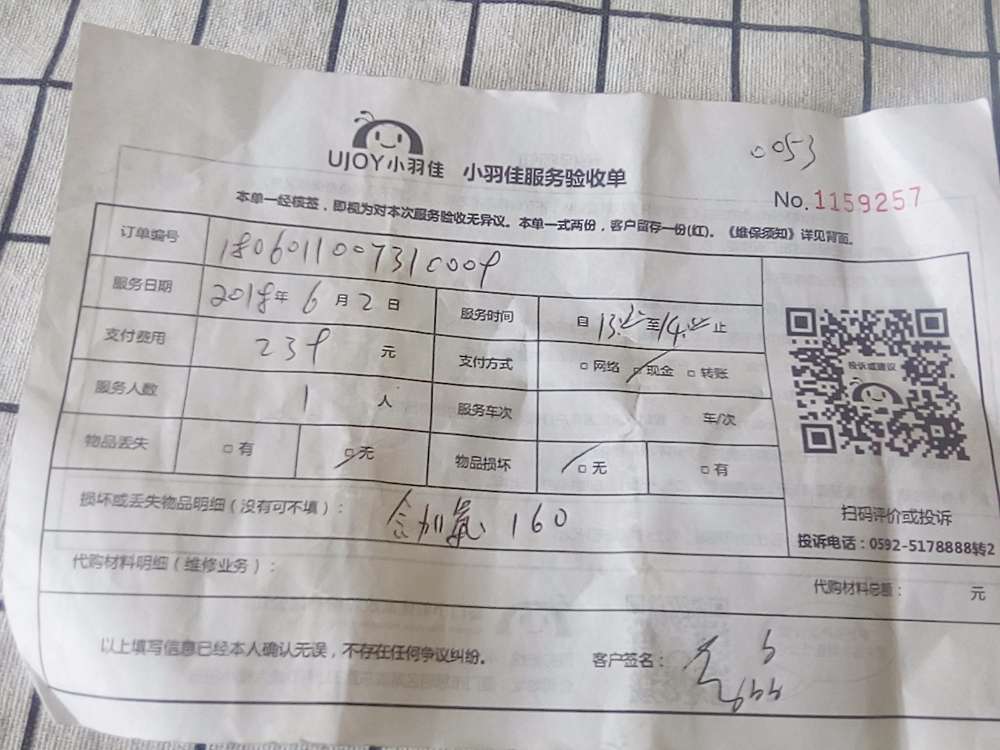 0053
UJOY小羽佳 小羽佳服务验收单
No.1159257
本单一经核签，即视为对本次服务验收无异议。本单一式两份，客户留存一份(红)。《维保须知》详见背面。
订单编号
服务日期 2018年 6月2日 服务时间 自 13. 至14. 止
支付费用 239 元 支付方式 □网络 □现金 □转账
服务人数 1 人 服务车次 车/次
物品丢失 □有 □无 物品损坏 □无 □有
投诉或建议
扫码评价或投诉
投诉电话：0592-5178888转2
损坏或丢失物品明细（没有可不填）： 加氟 160
代购材料明细（维修业务）： 代购材料总额： 元
以上填写信息已经本人确认无误，不存在任何争议纠纷。 客户签名：